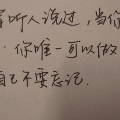 听人说过，当你
你唯一可以做
自己不要忘记.